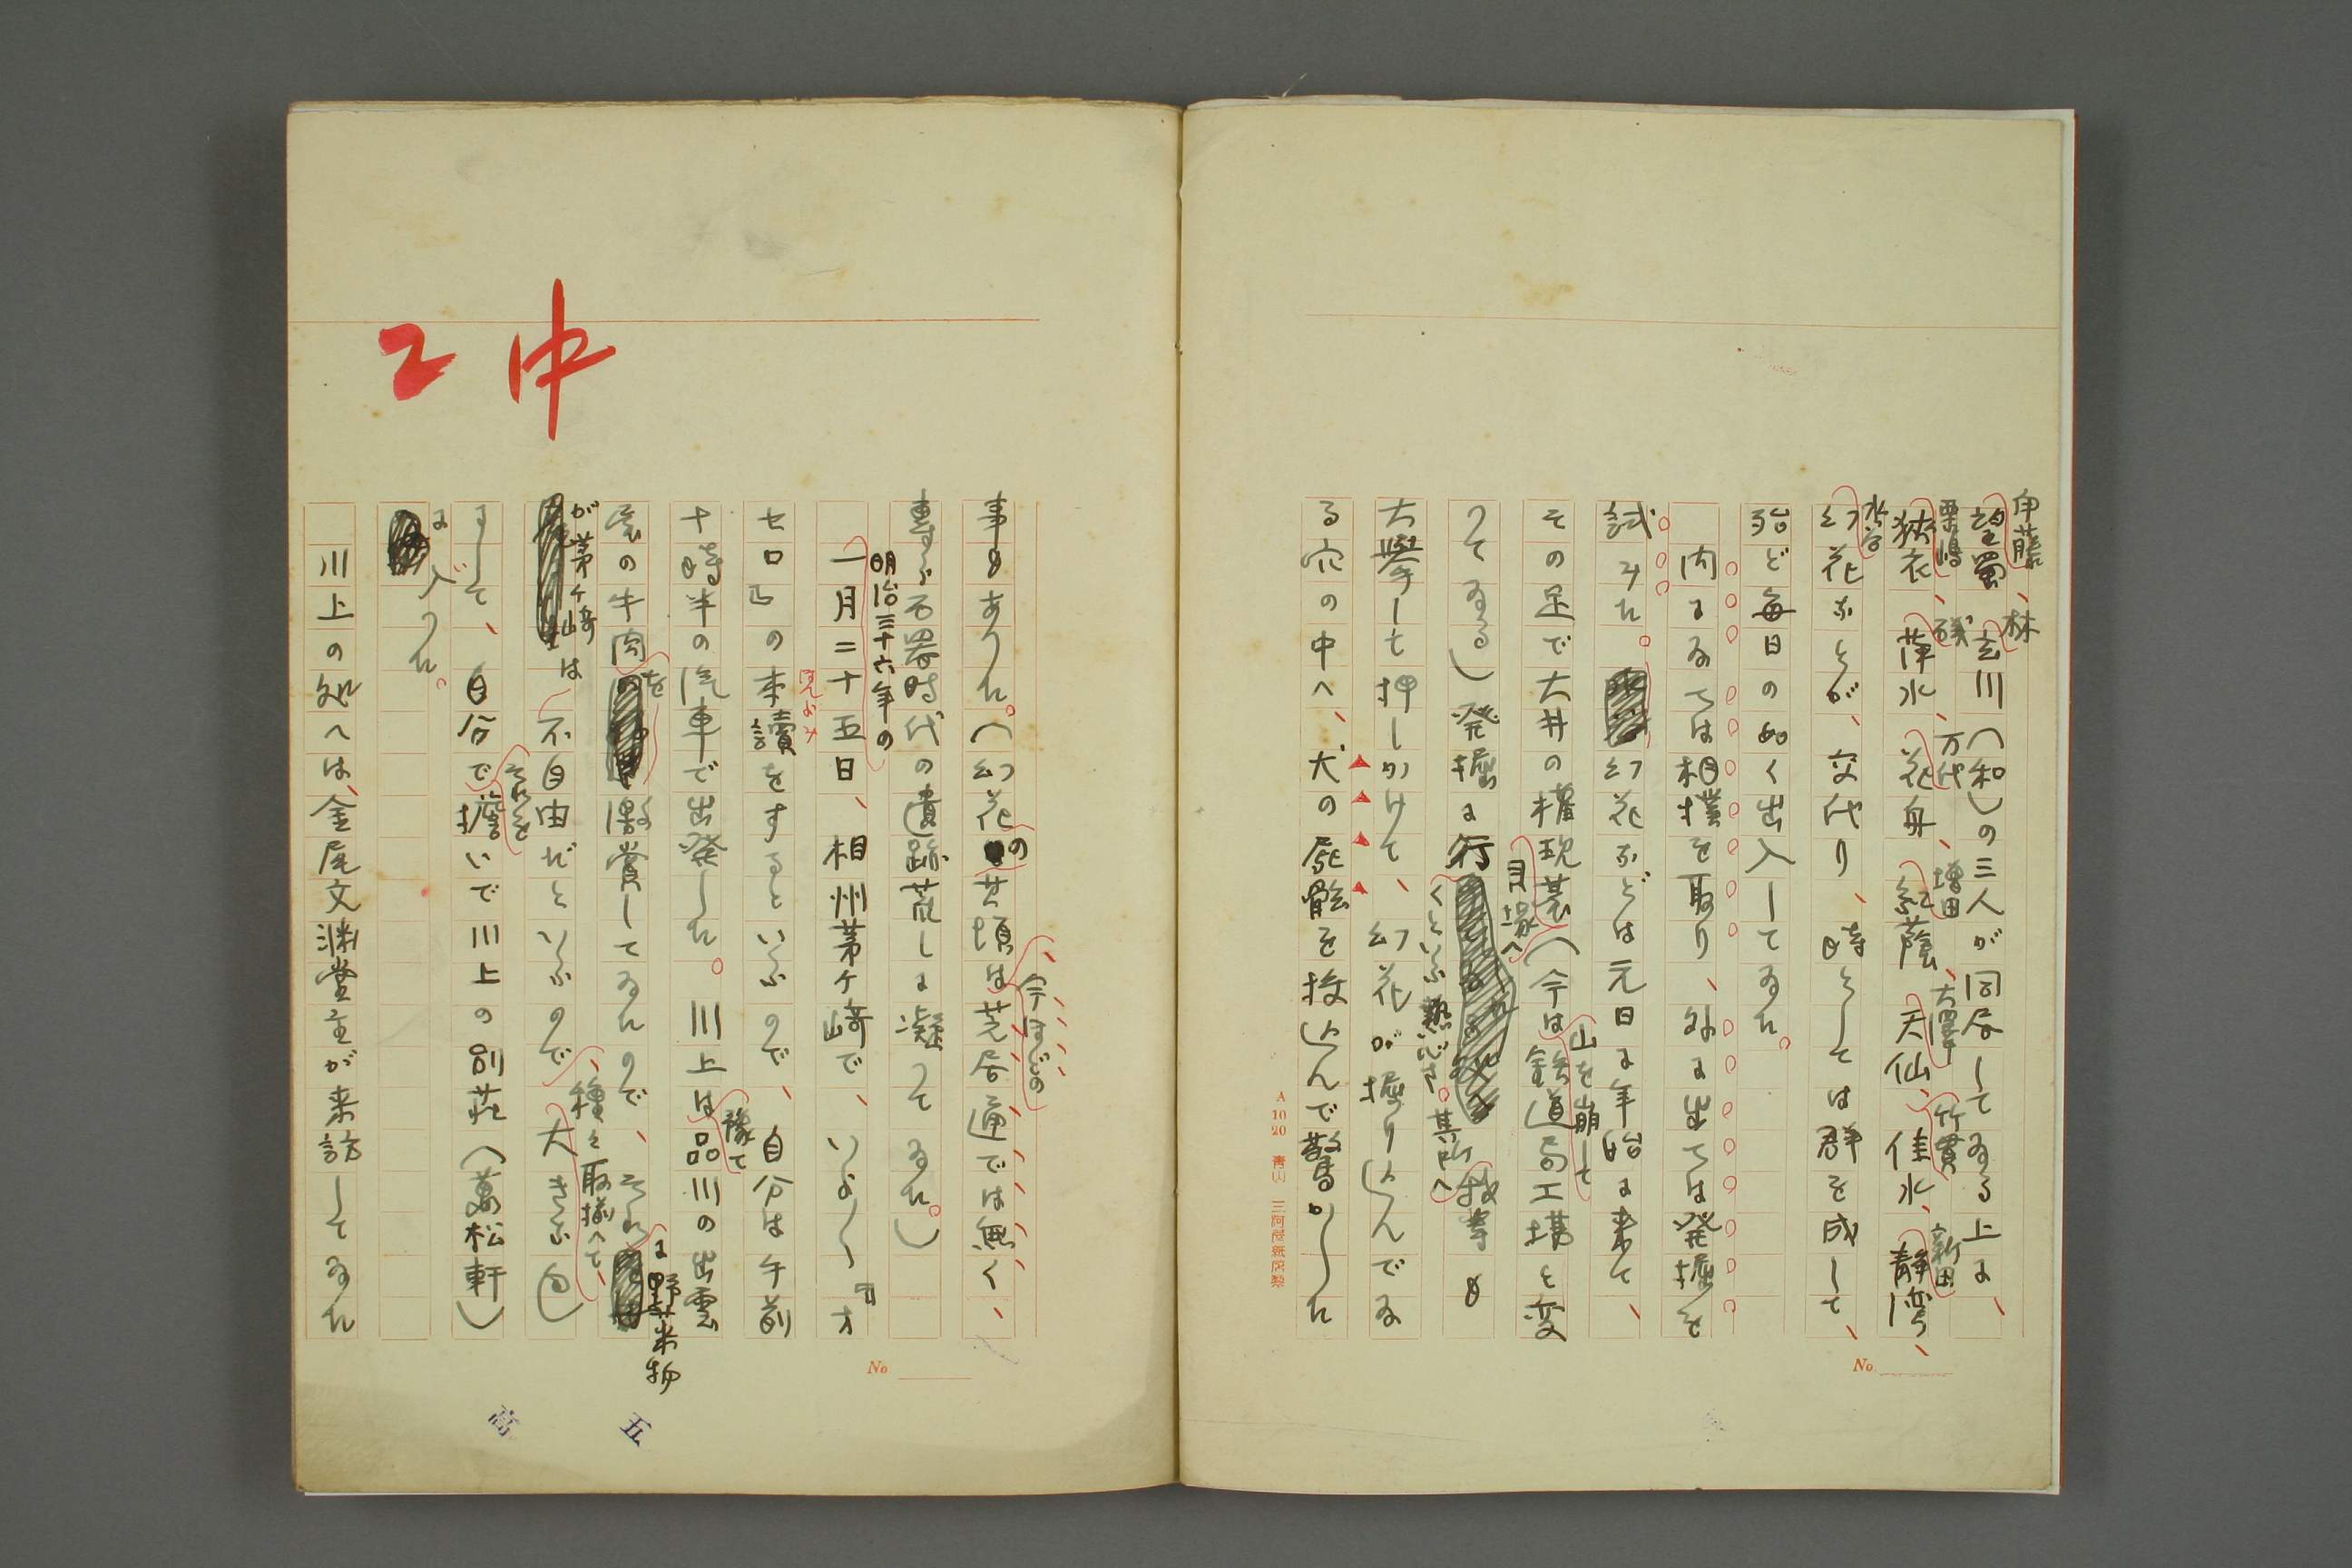 伊藤、林
望蜀、玄川（和）の三人が同居してゐる上に、
栗嶋、磯、万代、増田、大澤、竹貫、新田
狹衣、萍水、花舟、紅蔭、天仙、佳水、靜湾、
水谷
幻花などが、交代り、時としては群を成して、
殆ど毎日の如く出入してゐた。
内にゐては相撲を取り、外に出ては発掘を
試みた。幻花などは元日に年始に来て、
その足で大井の権現䑓
貝塚へ
（今は
山を崩して
鉄道局工場と変
つてゐる）発掘に行
くといふ熱心さ。其所へ
我等も
大擧して押しかけて、幻花が掘り込んでゐ
る穴の中へ、犬の死骸を投込んで驚かした
A 10 20
No
事もあつた。（幻花の其頃は
今ほどの
芝居通では無く、
専ら石器時代の遺跡荒しに凝つてゐた。）
明治三十六年の
一月二十五日、相州茅ヶ崎で、いよ〱『オ
セロ』の本讀
ほんよみ
をするといふので、自分は午前
十時半の汽車で出発した。川上は
豫て
品川の出雲
屋の牛肉を激賞してゐたので、それ
に野菜物
が茅ヶ崎
は不自由だといふので、
種々取揃へて、
大きな包
にして、
それを
自分で擔いで川上の別荘（萬松軒）
に入つた。
川上の処へは、金尾文渊堂主が来訪してゐた
No
中
2
五